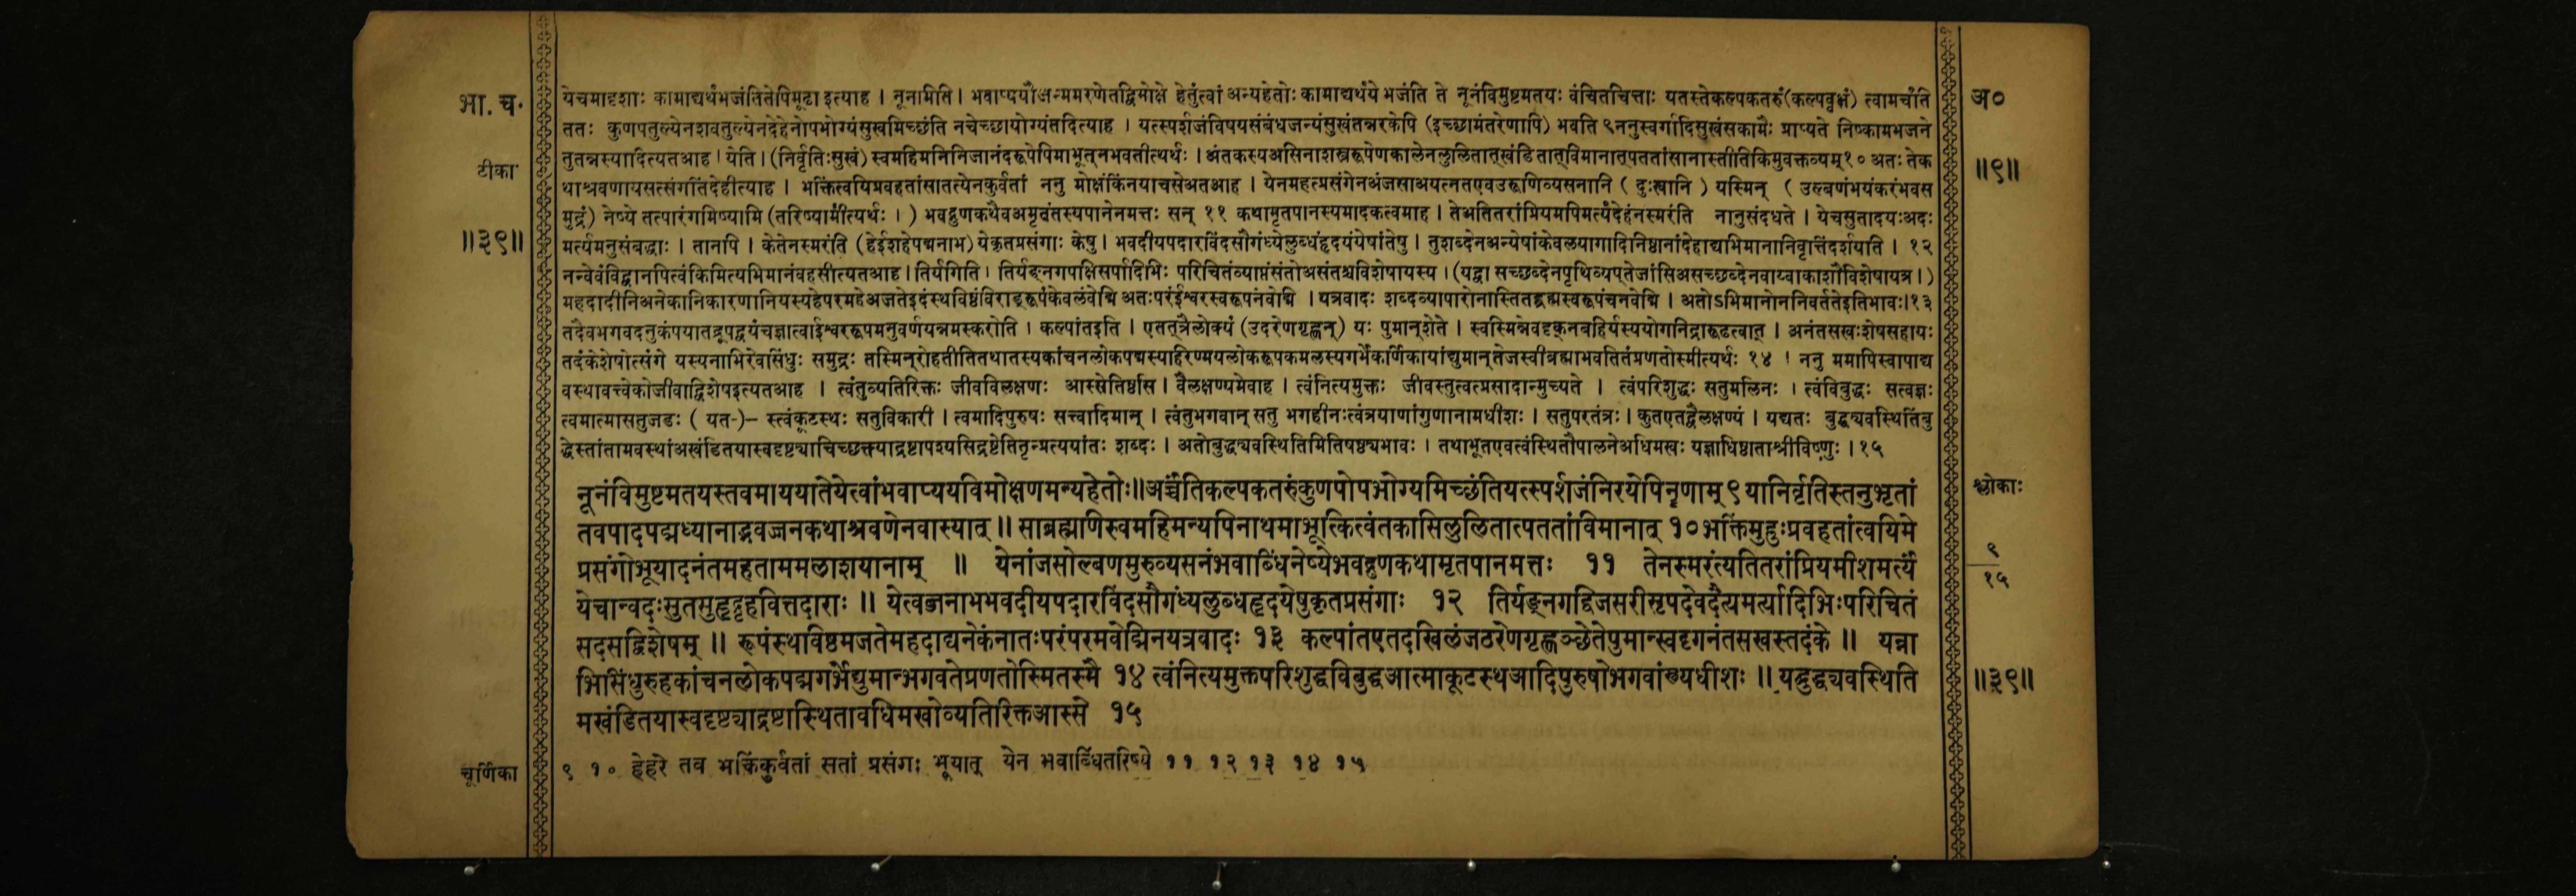 भा. च.
टीका
॥३९॥
येचमादृशाः कामाद्यर्थंभजंतितेपिमूढा इत्याह । नूनमिति । भवाप्ययौजन्ममरणेतद्विमोक्षे हेतुंत्वां अन्यहेतोः कामाद्यर्थंये भजंति ते नूनंविमुष्टमतयः वंचितचित्ताः यतस्तेकल्पकतरुं(कल्पवृक्षं) त्वामर्चंति
ततः कुणपतुल्येनशवतुल्येनदेहेनोपभोग्यंसुखमिच्छंति नचेच्छायोग्यंतदित्याह । यत्स्पर्शजंविषयसंबंधजन्यंसुखंतन्नरकेपि (इच्छामंतरेणापि) भवति ९ननुस्वर्गादिसुखंसकामैः प्राप्यते निष्कामभजने
तुतन्नस्यादित्यतआह । येति । (निर्वृतिःसुखं) स्वमहिमनिनिजानंदरूपेपिमाभूत्नभवतीत्यर्थः । अंतकस्यअसिनाशस्त्ररूपेणकालेनलुलितात्खंडितात्विमानात्पततांसानास्तीतिकिमुवक्तव्यम्१० अतः तेक
थाश्रवणायसत्संगतिंदेहीत्याह । भक्तिंत्वयिप्रवहतांसातत्येनकुर्वतां ननु मोक्षंकिंनयाचसेअतआह । येनमहत्प्रसंगेनअंजसाअयत्नतएवउरूणिव्यसनानि ( दुःखानि ) यस्मिन् ( उल्बणंभयंकरंभवस
मुद्रं) नेष्ये तत्पारंगमिष्यामि (तरिष्यामीत्यर्थः । ) भवद्गुणकथैवअमृतंतस्यपानेनमत्तः सन् ११ कथामृतपानस्यमादकत्वमाह । तेअतितरांप्रियमपिमर्त्यंदेहंनस्मरंति नानुसंदधते । येचसुतादयःअदः
मर्त्यमनुसंबद्धाः । तानपि । केतेनस्मरंति (हेईशहेपद्मनाभ) येकृतप्रसंगाः केषु । भवदीयपदारविंदसौगंध्येलुब्धंहृदयंयेषांतेषु । तुशब्देनअन्येषांकेवलयागादिनिष्ठानांदेहाद्यभिमानानिवृत्तिंदर्शयति । १२
नन्वेवंविद्वानपित्वंकिमित्यभिमानंवहसीत्यतआह । तिर्यगिति । तिर्यङ्नगपक्षिसर्पादिभिः परिचितंव्याप्तंसंतोअसंतश्चविशेषायस्य । (यद्वा सच्छब्देनपृथिव्यप्तेजांसिअसच्छब्देनवाय्वाकाशौविशेषायत्र । )
महदादीनिअनेकानिकारणानियस्यहेपरमहेअजतेइदंस्थविष्ठंविराड्रूपंकेवलंवेद्मि अतःपरंईश्वरस्वरूपंनवेद्मि । यत्रवादः शब्दव्यापारोनास्तितद्ब्रह्मस्वरूपंचनवेद्मि । अतोऽभिमानोननिवर्ततेइतिभावः।१३
तदैवभगवदनुकंपयातद्रूपद्वयंचज्ञात्वाईश्वररूपमनुवर्णयन्नमस्करोति । कल्पांतइति । एतत्त्रैलोक्यं (उदरेणगृह्णन्) यः पुमान्शेते । स्वस्मिन्नेवदृक्नबहिर्यस्ययोगनिद्रारूढत्वात् । अनंतसखःशेषसहायः
तदंकेशेषोत्संगे यस्यनाभिरेवसिंधुः समुद्रः तस्मिन्रोहतीतितथातस्यकांचनलोकपद्मस्यहिरण्मयलोकरूपकमलस्यगर्भेकर्णिकायांद्युमान्तेजस्वीब्रह्माभवतितंप्रणतोस्मीत्यर्थः १४ । ननु ममापिस्वापाद्य
वस्थावत्त्वेकोजीवाद्विशेषइत्यतआह । त्वंतुव्यतिरिक्तः जीवविलक्षणः आस्सेतिष्ठसि । वैलक्षण्यमेवाह । त्वंनित्यमुक्तः जीवस्तुत्वत्प्रसादान्मुच्यते । त्वंपरिशुद्धः सतुमलिनः । त्वंविबुद्धः सत्वज्ञः
त्वमात्मासतुजडः ( यत-)– स्त्वंकूटस्थः सतुविकारी । त्वमादिपुरुषः सत्त्वादिमान् । त्वंतुभगवान् सतु भगहीनःत्वंत्रयाणांगुणानामधीशः । सतुपरतंत्रः । कुतएतद्वैलक्षण्यं । यद्यतः बुद्ध्यवस्थितिंबु
द्धेस्तांतामवस्थांअखंडितयास्वदृष्ट्याचिच्छक्त्याद्रष्टापश्यसिद्रष्टेतितृन्प्रत्ययांतः शब्दः । अतोबुद्ध्यवस्थितिमितिषष्ठ्यभावः । तथाभूतएवत्वंस्थितौपालनेअधिमखः यज्ञाधिष्ठाताश्रीविष्णुः । १५
नूनंविमुष्टमतयस्तवमाययातेयेत्वांभवाप्ययविमोक्षणमन्यहेतोः॥अर्च्चंतिकल्पकतरुंकुणपोपभोग्यमिच्छंतियत्स्पर्शजंनिरयेपिनॄणाम् ९ यानिर्वृतिस्तनुभृतां
तवपादपद्मध्यानाद्भवज्जनकथाश्रवणेनवास्यात् ॥ साब्रह्मणिस्वमहिमन्यपिनाथमाभूत्किंत्वंतकासिलुलितात्पततांविमानात् १० भक्तिंमुहुःप्रवहतांत्वयिमे
प्रसंगोभूयादनंतमहताममलाशयानाम् ॥ येनांजसोल्बणमुरुव्यसनंभवाब्धिंनेष्येभवद्गुणकथामृतपानमत्तः ११ तेनस्मरंत्यतितरांप्रियमीशमर्त्यं
येचान्वदःसुतसुहृद्गृहवित्तदाराः ॥ येत्वब्जनाभभवदीयपदारविंदसौगंध्यलुब्धहृदयेषुकृतप्रसंगाः १२ तिर्यङ्नगद्विजसरीसृपदेवदैत्यमर्त्यादिभिःपरिचितं
सदसद्विशेषम् ॥ रूपंस्थविष्ठमजतेमहदाद्यनेकंनातःपरंपरमवेद्मिनयत्रवादः १३ कल्पांतएतदखिलंजठरेणगृह्णञ्छेतेपुमान्स्वदृगनंतसखस्तदंके ॥ यन्ना
भिसिंधुरुहकांचनलोकपद्मगर्भेद्युमान्भगवतेप्रणतोस्मितस्मै १४ त्वंनित्यमुक्तपरिशुद्धविबुद्धआत्माकूटस्थआदिपुरुषोभगवांस्त्र्यधीशः ॥ यद्बुद्ध्यवस्थिति
मखंडितयास्वदृष्ट्याद्रष्टास्थितावधिमखोव्यतिरिक्तआस्से १५
चूर्णिका
९ १० हेहरे तव भक्तिंकुर्वतां सतां प्रसंगः भूयात् येन भवाब्धिंतरिष्ये ११ १२ १३ १४ १५
अ०
॥९॥
श्लोकाः
९
१५
॥३९॥